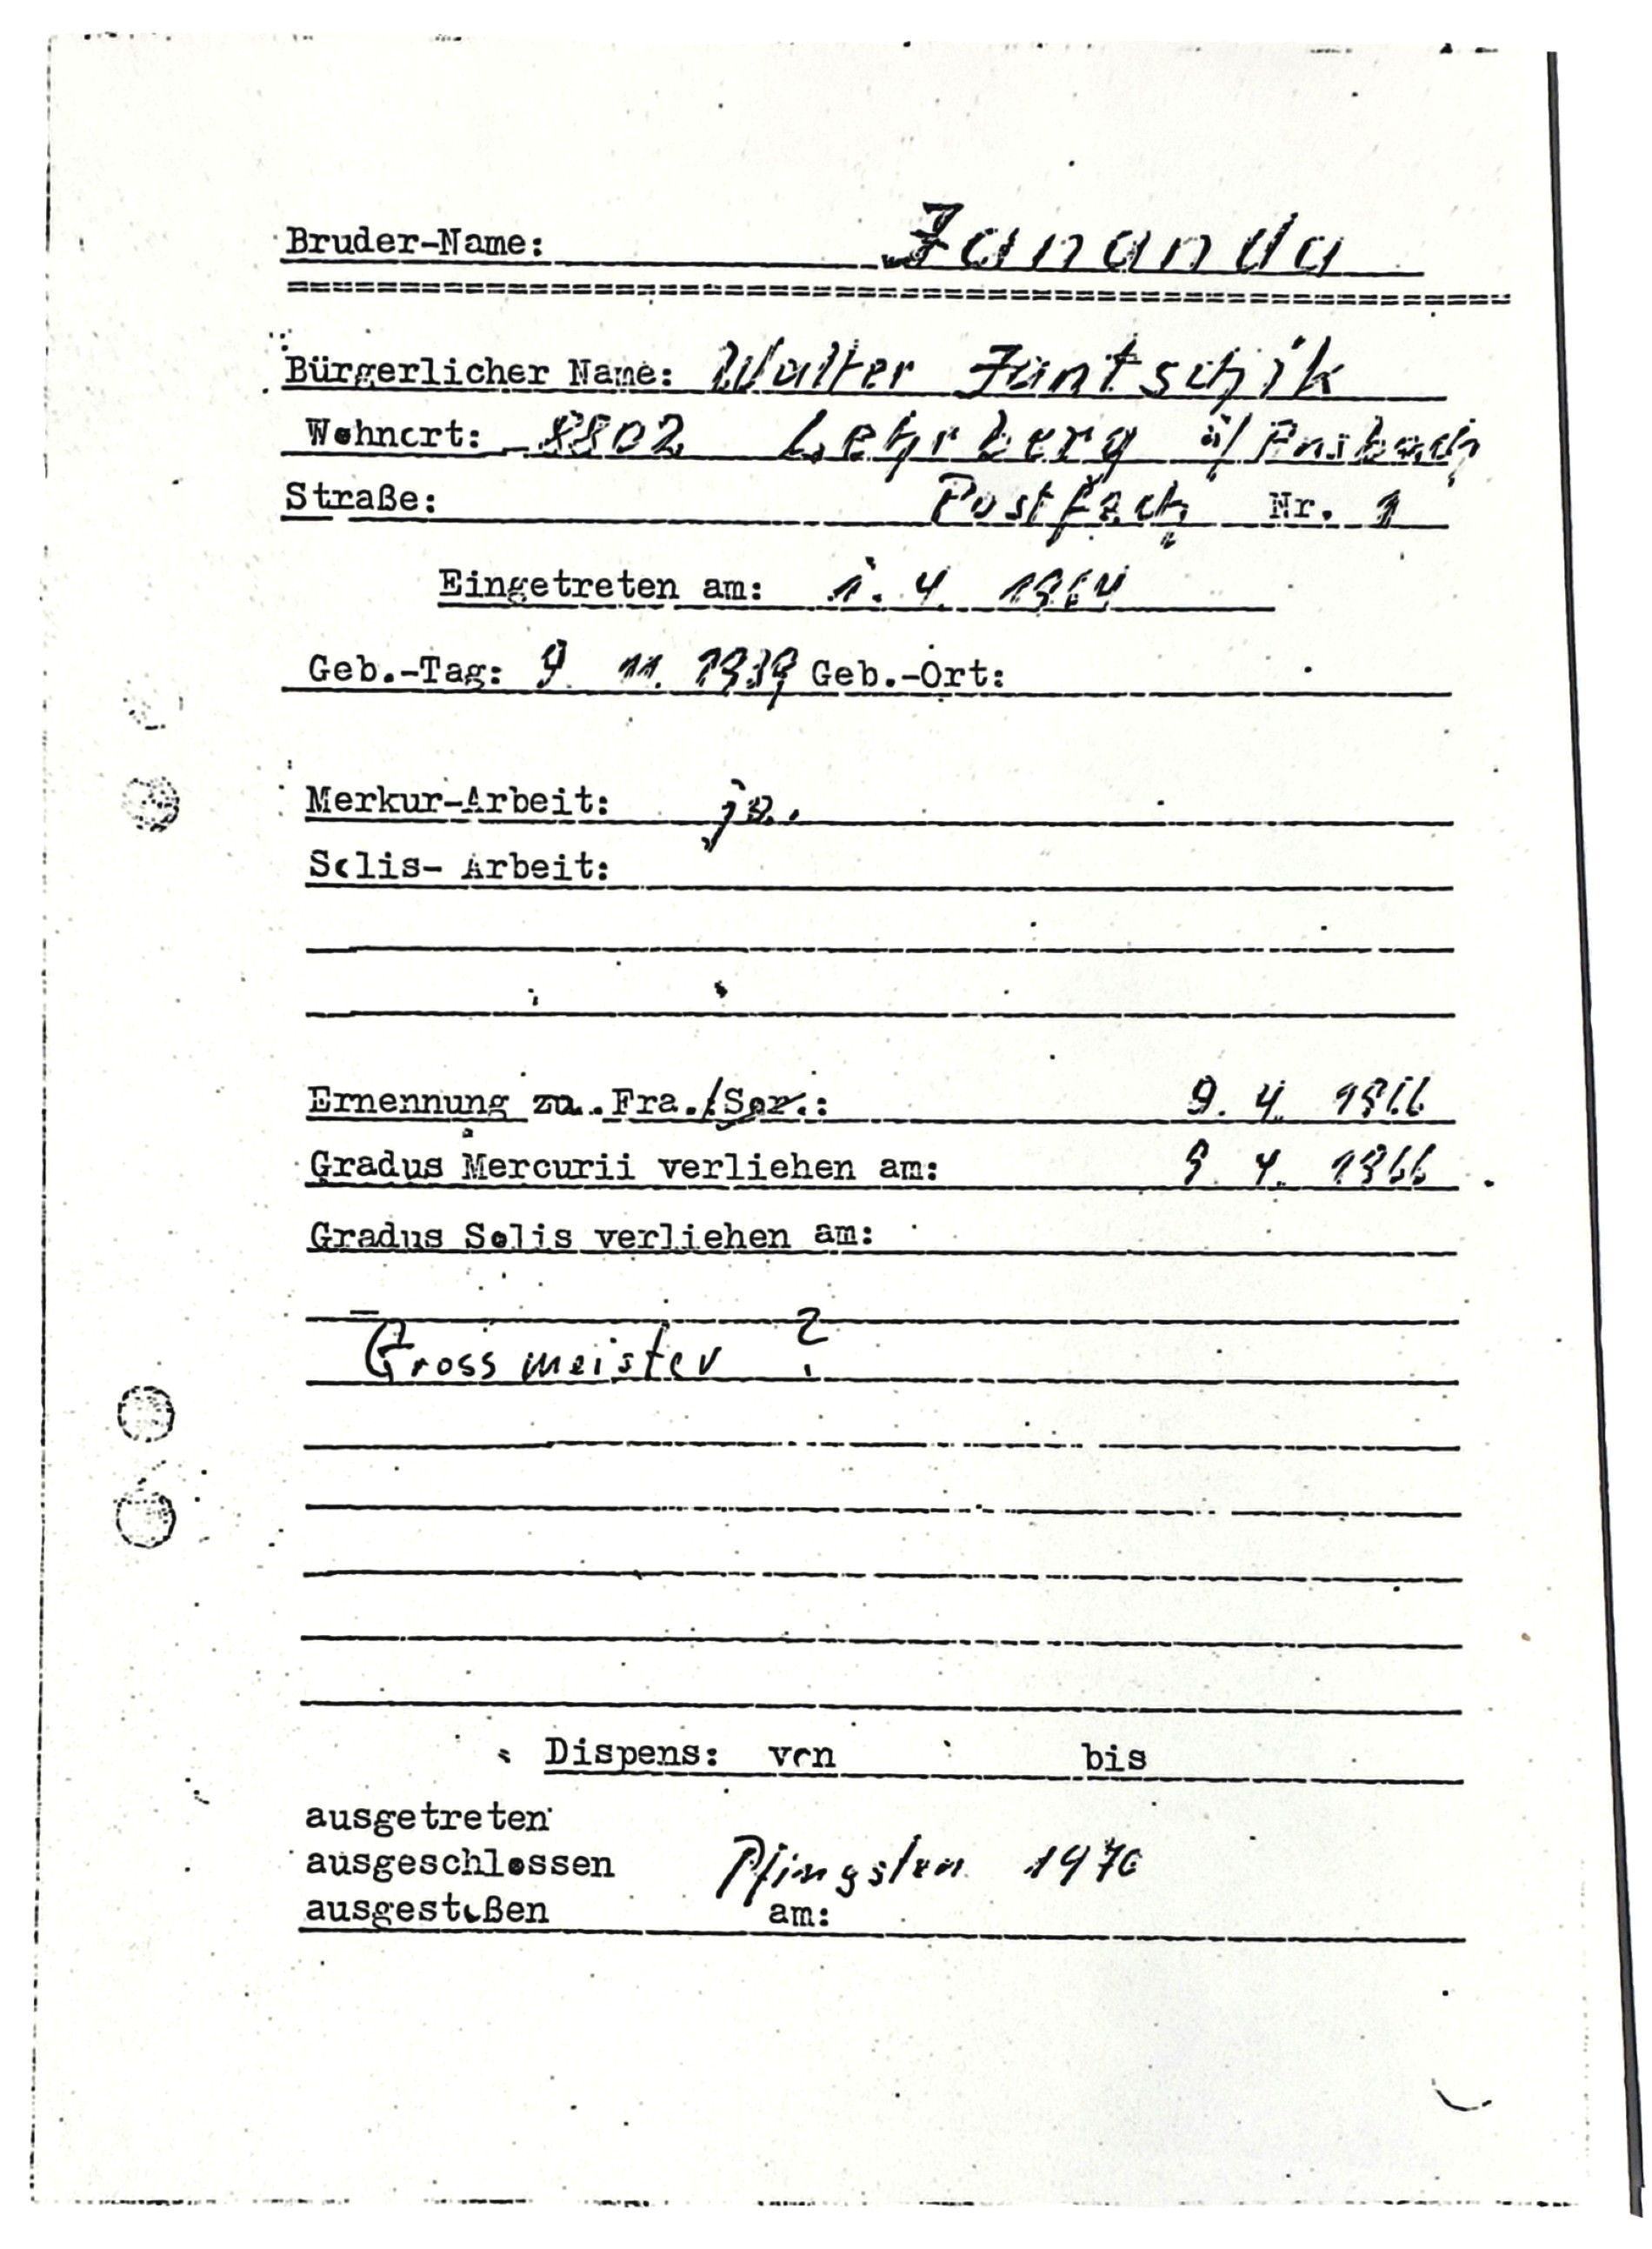 Bruder-Name: Jananda
Bürgerlicher Name: Walter Jantschik
Wohnort: 8802 Lehrberg ü/ Ansbach
Straße: Postfach Nr. 1
Eingetreten am: 1. 4. 1964
Geb.-Tag: 9. 11. 1939 Geb.-Ort:
Merkur-Arbeit: ja.
Solis- Arbeit:
Ernennung zu. Fra./Sor.: 9. 4. 1966
Gradus Mercurii verliehen am: 9. 4. 1966
Gradus Solis verliehen am:
Grossmeister ?
Dispens: von bis
ausgetreten
ausgeschlossen Pfingsten 1970
ausgestoßen am: